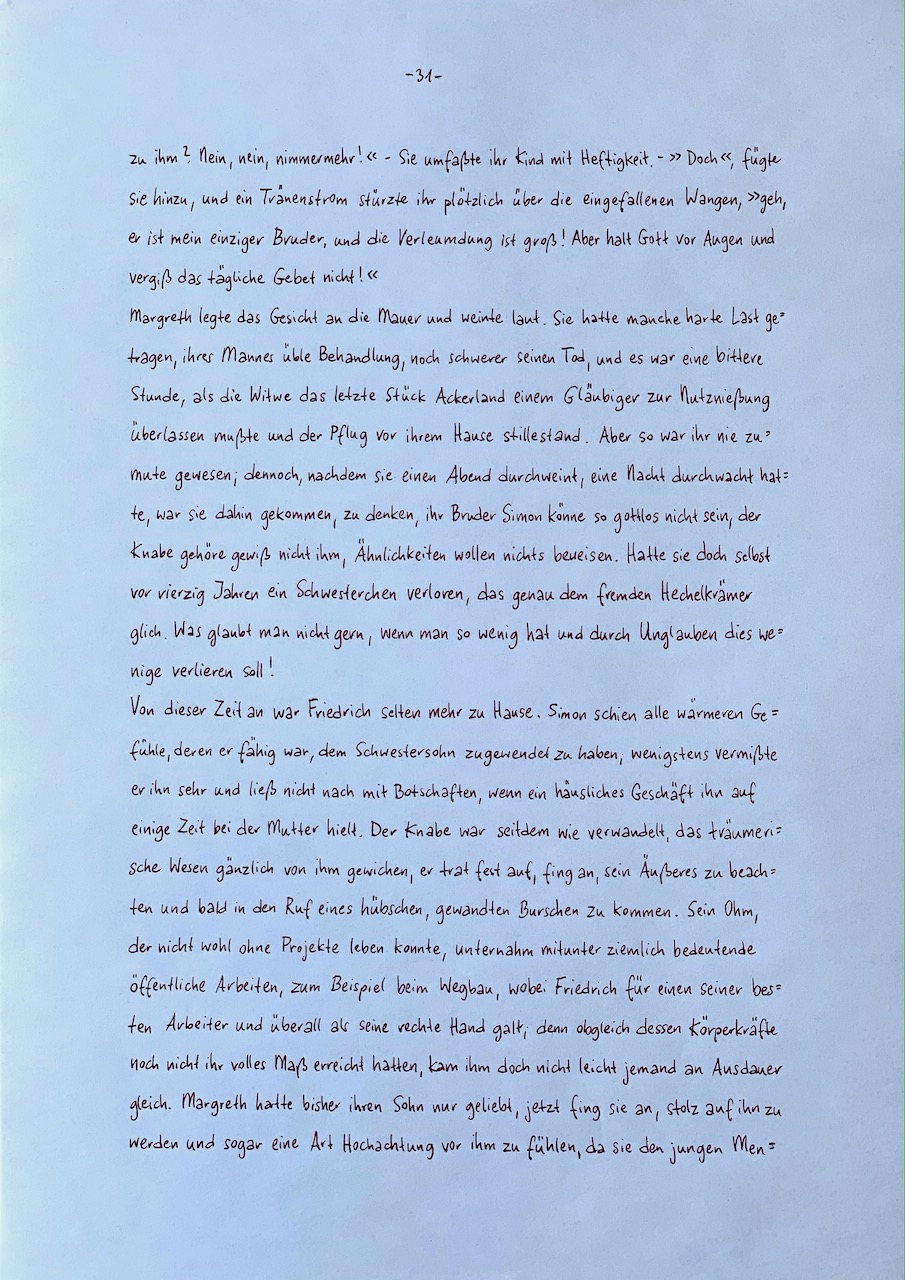 -31-
zu ihm? Nein, nein, nimmermehr!« - Sie umfaßte ihr Kind mit Heftigkeit. - »Doch«, fügte
sie hinzu, und ein Tränenstrom stürzte ihr plötzlich über die eingefallenen Wangen, »geh,
er ist mein einziger Bruder, und die Verleumdung ist groß! Aber halt Gott vor Augen und
vergiß das tägliche Gebet nicht!«
Margreth legte das Gesicht an die Mauer und weinte laut. Sie hatte manche harte Last ge=
tragen, ihres Mannes üble Behandlung, noch schwerer seinen Tod, und es war eine bittere
Stunde, als die Witwe das letzte Stück Ackerland einem Gläubiger zur Nutznießung
überlassen mußte und der Pflug vor ihrem Hause stillestand. Aber so war ihr nie zu=
mute gewesen; dennoch, nachdem sie einen Abend durchweint, eine Nacht durchwacht hat=
te, war sie dahin gekommen, zu denken, ihr Bruder Simon könne so gottlos nicht sein, der
Knabe gehöre gewiß nicht ihm, Ähnlichkeiten wollen nichts beweisen. Hatte sie doch selbst
vor vierzig Jahren ein Schwesterchen verloren, das genau dem fremden Hechelkrämer
glich. Was glaubt man nicht gern, wenn man so wenig hat und durch Unglauben dies we=
nige verlieren soll!
Von dieser Zeit an war Friedrich selten mehr zu Hause. Simon schien alle wärmeren Ge=
fühle, deren er fähig war, dem Schwestersohn zugewendet zu haben; wenigstens vermißte
er ihn sehr und ließ nicht nach mit Botschaften, wenn ein häusliches Geschäft ihn auf
einige Zeit bei der Mutter hielt. Der Knabe war seitdem wie verwandelt, das träumeri=
sche Wesen gänzlich von ihm gewichen, er trat fest auf, fing an, sein Äußeres zu beach=
ten und bald in den Ruf eines hübschen, gewandten Burschen zu kommen. Sein Ohm,
der nicht wohl ohne Projekte leben konnte, unternahm mitunter ziemlich bedeutende
öffentliche Arbeiten, zum Beispiel beim Wegbau, wobei Friedrich für einen seiner bes=
ten Arbeiter und überall als seine rechte Hand galt; denn obgleich dessen Körperkräfte
noch nicht ihr volles Maß erreicht hatten, kam ihm doch nicht leicht jemand an Ausdauer
gleich. Margreth hatte bisher ihren Sohn nur geliebt, jetzt fing sie an, stolz auf ihn zu
werden und sogar eine Art Hochachtung vor ihm zu fühlen, da sie den jungen Men=